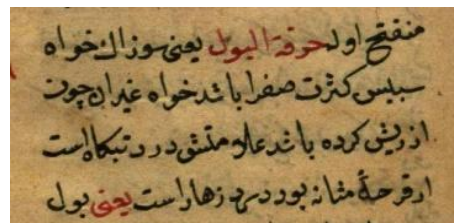 منفتح اولہ حرقة البول یعنی سوزاك خواه
سببس كثرت صفرا باشد خواه غیر ان چون
از ریش كرده باشد علا متش درد تهكاه است
از قرحهٔ مثانه بود درد زهار است یعنی بول